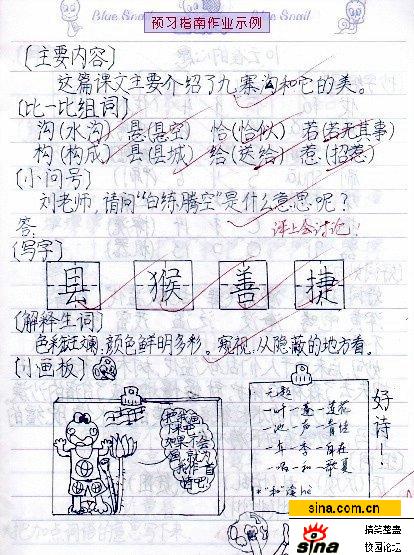 Blue Snail
Blue Snail
预习指南作业示例
(主要内容)
这篇课文主要介绍了九寨沟和它的美。
(比一比组词)
沟(水沟) 悬(悬空) 恰(恰似) 若(若无其事)
构(构成) 县(县城) 给(送给) 惹(招惹)
(小问号)
刘老师,请问“白练腾空”是什么意思呢?
答:
课上会讨论!
(写字)
县 猴 善 捷
(解释生词)
色彩斑斓,颜色鲜明多彩。窥视,从隐蔽的地方看。
(小画板)
无题
一叶一莲一莲花
一池一声一青蛙
一年一季一自在
一唱一和一华夏
"和"读hè
好诗!
sina.com.cn
sina
搞笑整蛊
校园论坛